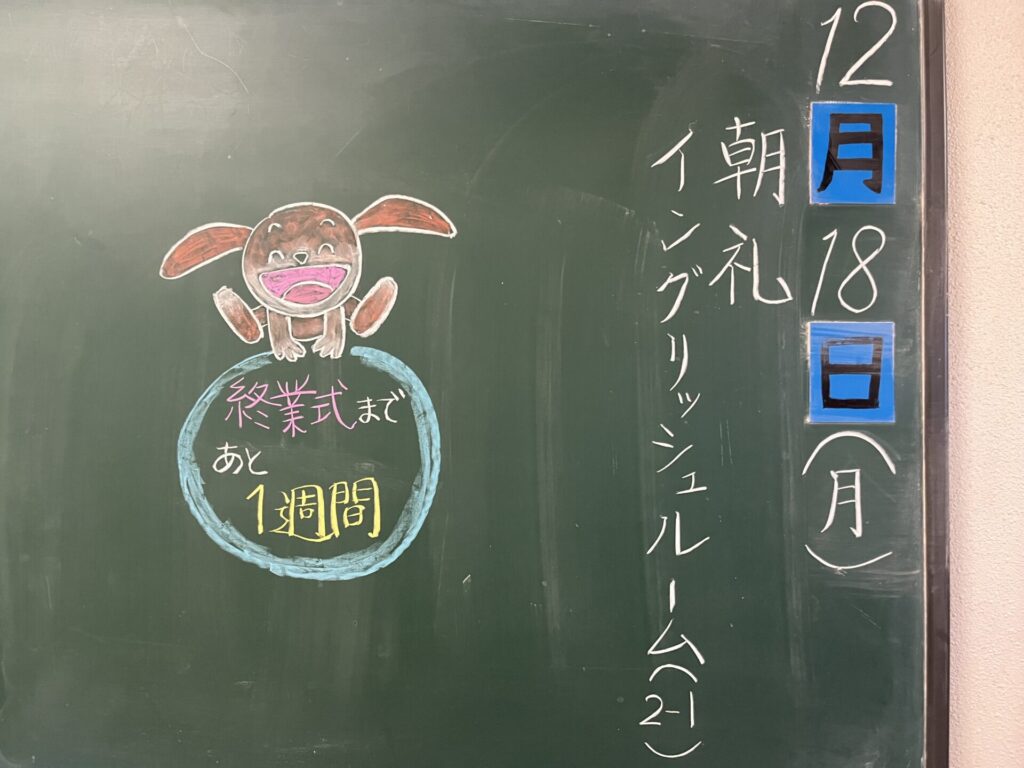 12月18日(月)
朝礼
イングリッシュルーム(2-1)
終業式まで
あと
1週間